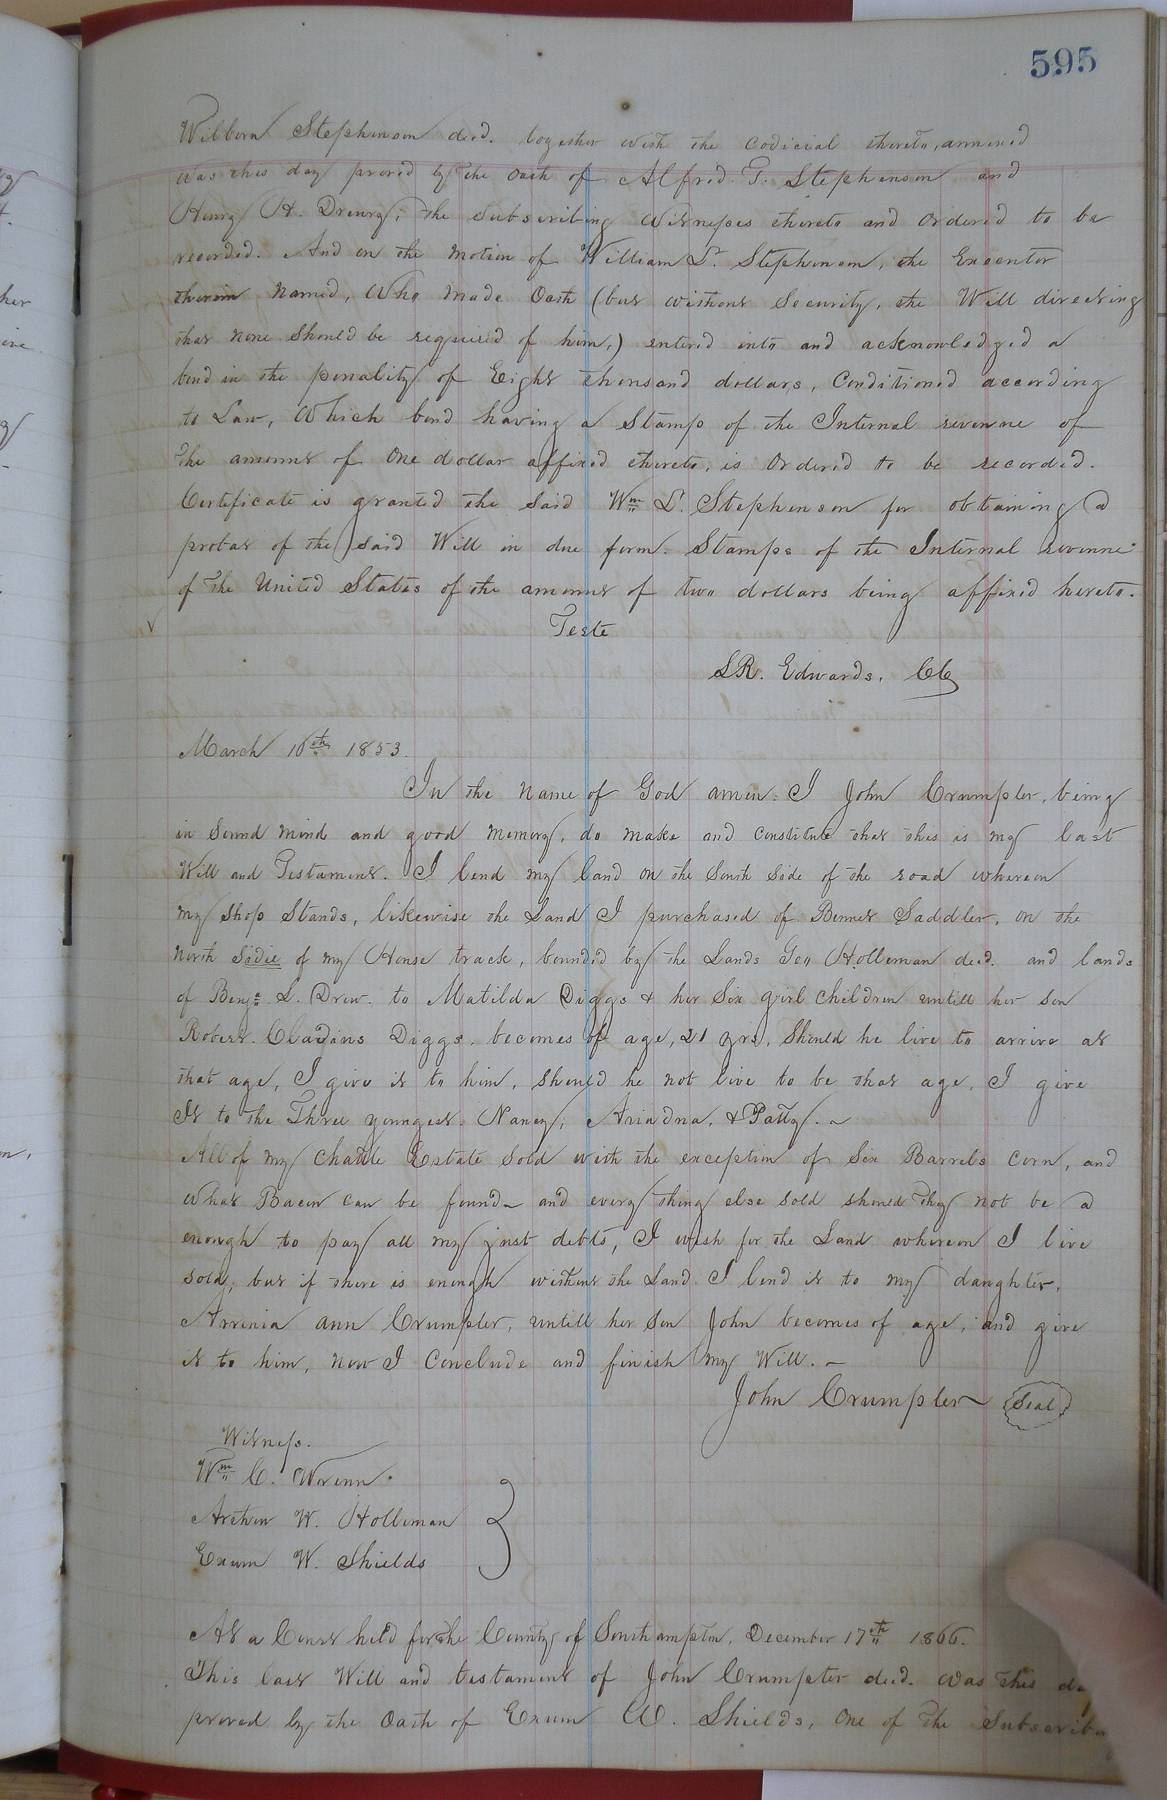 595
Wilborn Stephenson decd. together with the Codicial thereto, annexed
was this day proved by the Oath of Alfred T. Stephenson and
Henry H. Drewry, the Subscribing Witnesses thereto and Ordered to be
recorded. And on the Motion of William S. Stephenson, the Executor
therein Named, Who made Oath (but without Security, the Will directing
that none should be required of him,) entered into and acknowledged a
bond in the penality of Eight thousand dollars, Conditioned according
to Law, Which bond having a Stamp of the Internal revenue of
the amount of One dollar affixed thereto, is Ordered to be recorded.
Certificate is granted the Said Wm S. Stephenson for obtaining a
probat of the said Will in due form. Stamps of the Internal revenue
of the United States of the amount of two dollars being affixed hereto.
Teste
LR. Edwards, CC
March 10th 1853.
In the Name of God amen. I John Crumpler, being
in Sound mind and good memory, do make and constitute that this is my last
Will and Testament. I lend my land on the South Side of the road whereon
my Shop Stands, likewise the Land I purchased of Bennet Saddler, on the
North Sidie of my House track, bounded by the Lands Geo Holleman decd. and lands
of Benj. L. Drew. to Matilda Diggs & her Six girl children untill her son
Robert Claudius Diggs, becomes of age, 21 yrs, Should he live to arrive at
that age, I give it to him, should he not live to be that age, I give
It to the Three youngest. Nancy, Ariadna, & Patty.
All of my Chatle Estate Sold with the exception of Six Barrels Corn, and
What Bacon can be found and every thing else sold should thy not be a
enough to pay all my just debts, I wish for the Land whereon I live
sold, but if there is enough without the Land I lend it to my daughter,
Arrinia ann Crumpler, untill her Son John becomes of age, and give
it to him, now I Conclude and finish my Will.
John Crumpler Seal
Witness.
Wm C. Wrenn
Arthur W. Holleman
Exum W. Shields
At a Court held for the County of Southampton, December 17th 1866.
This last Will and testament of John Crumpler decd. was this
proved by the Oath of Exum W. Shields, One of the